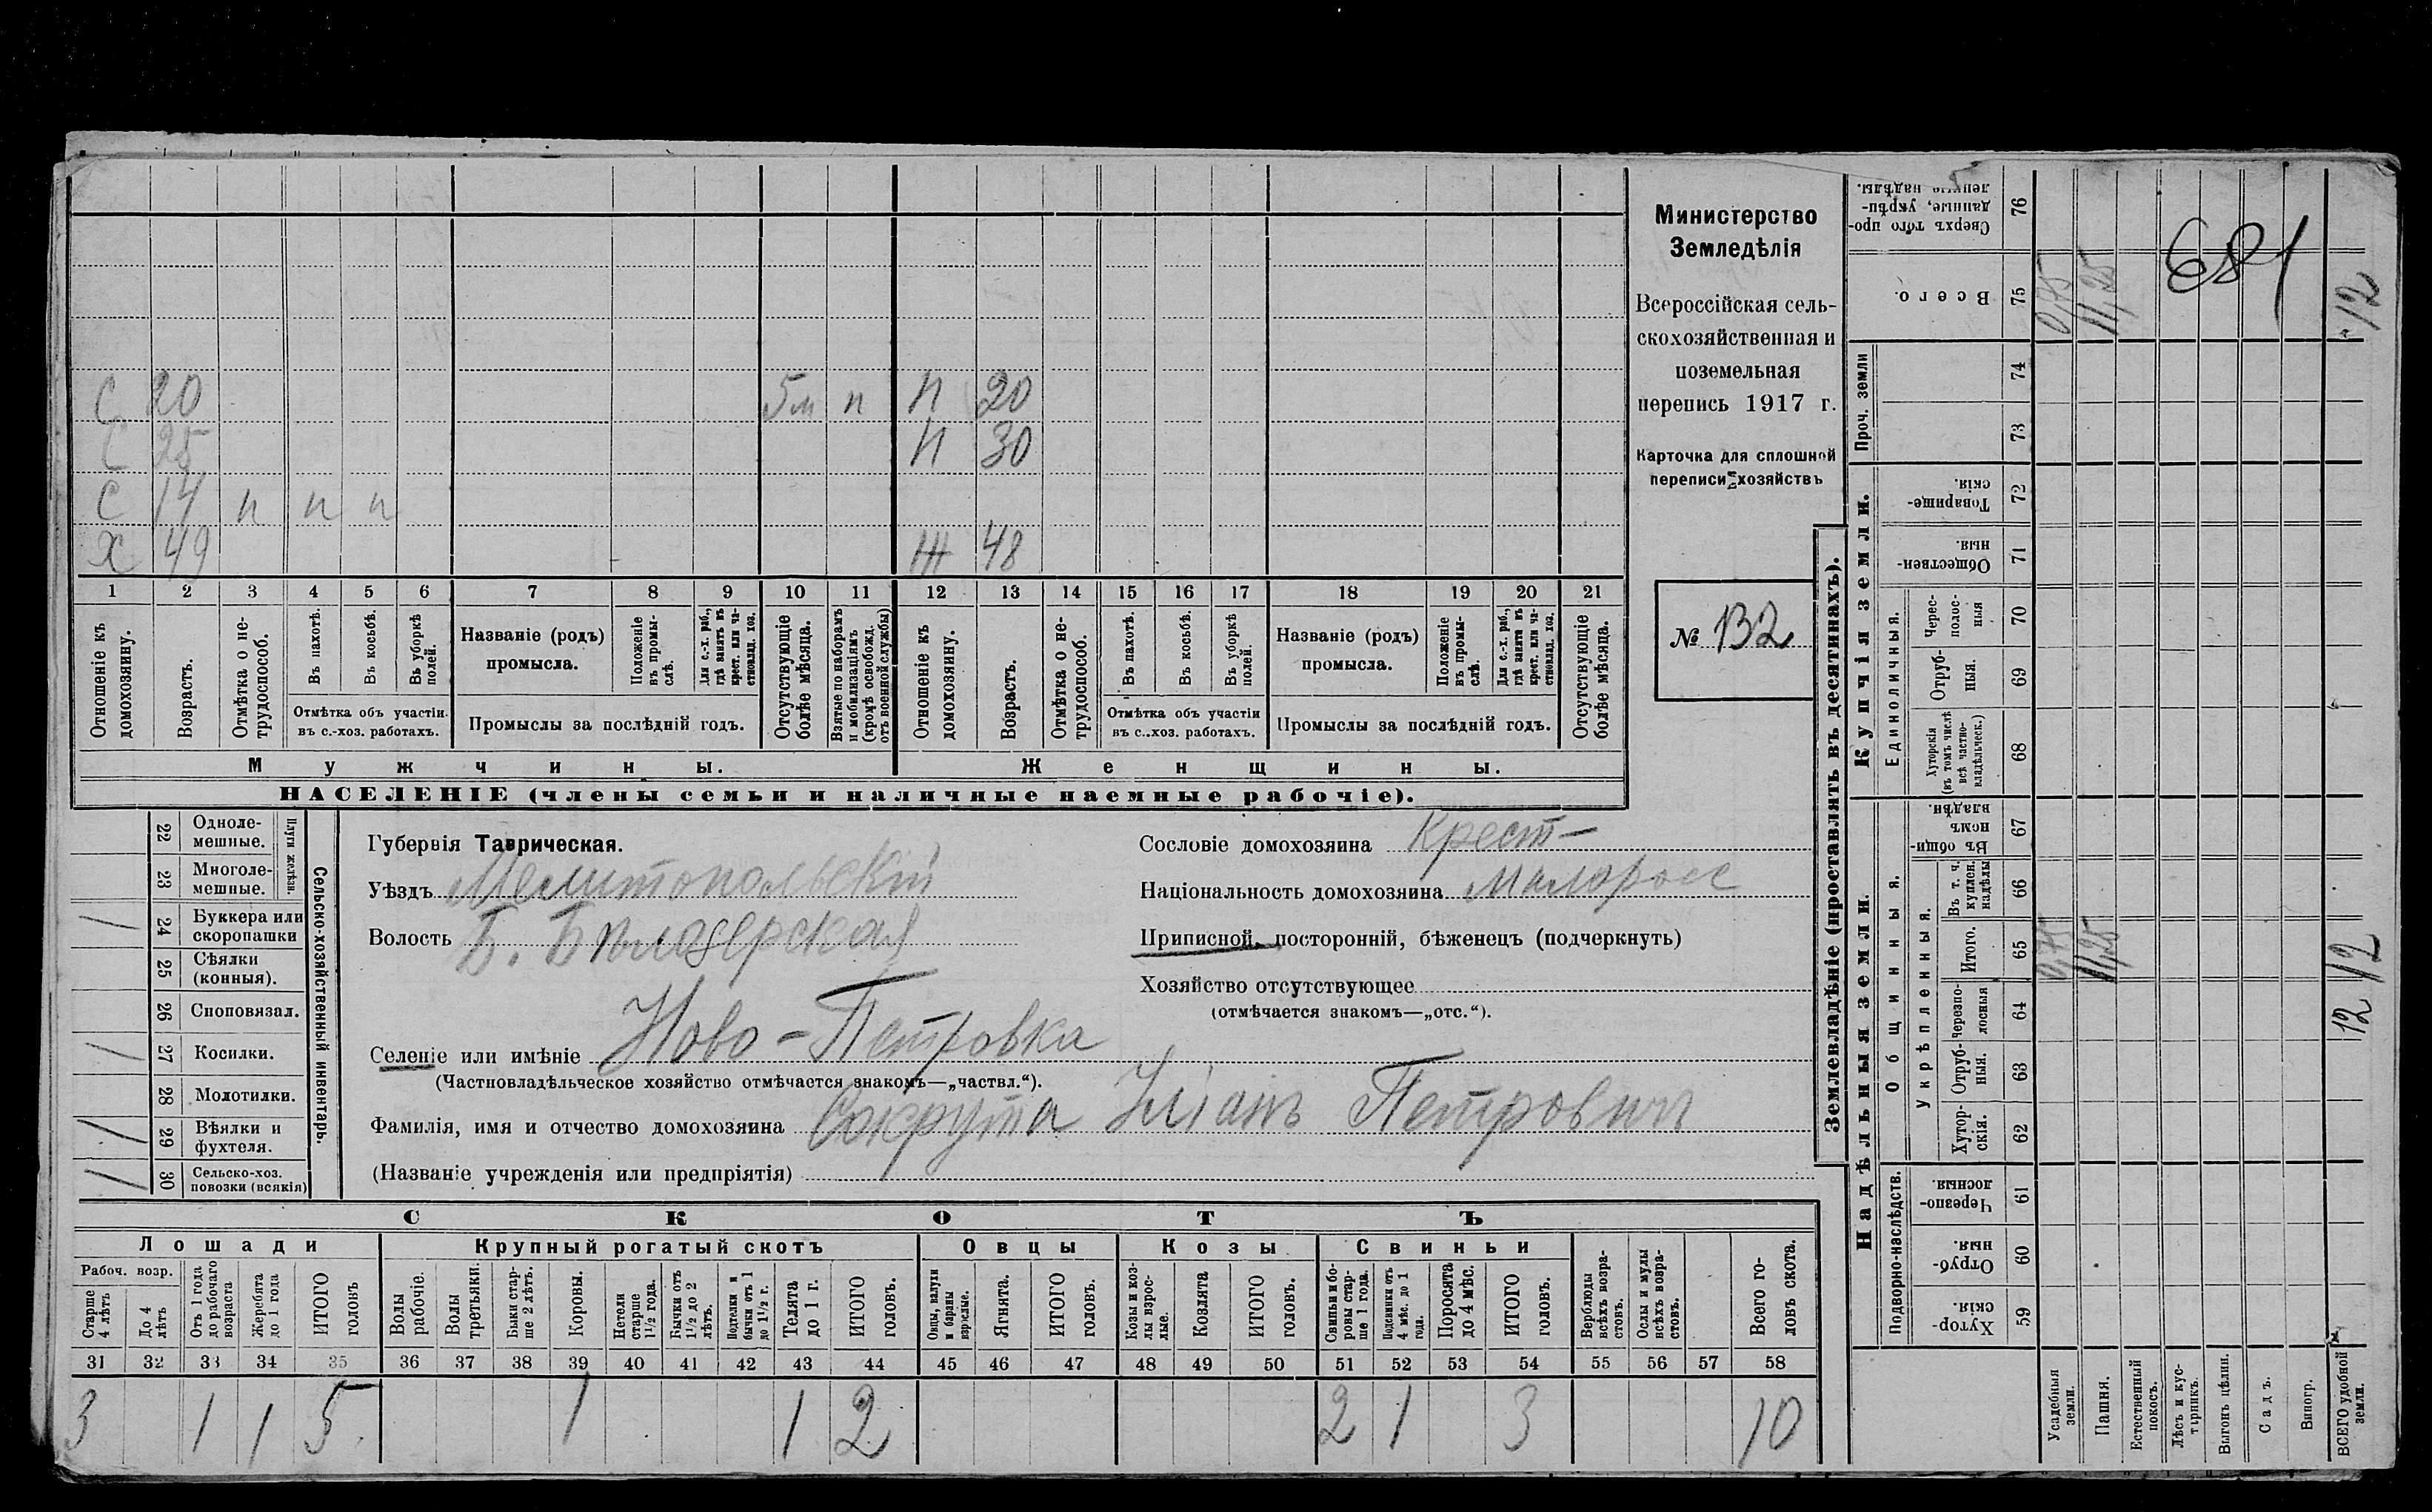 Министерство
Земледѣлія
Всероссійская сель-
скохозяйственная и
поземельная
перепись 1917 г.
Карточка для сплошной
переписи хозяйствъ
№ 132
681
С 20 5м п П 20
С 25 П 30
С 14 п п п
Х 49 Ж 48
1 2 3 4 5 6 7 8 9 10 11 12 13 14 15 16 17 18 19 20 21
Отношеніе къ домохозяину.
Возрастъ.
Отмѣтка о не-трудоспособ.
Въ пахотѣ.
Въ косьбѣ.
Въ уборкѣ полей.
Отмѣтка объ участіи въ с.-хоз. работахъ.
Названіе (родъ) промысла.
Положеніе въ промы-слѣ.
Для с.-х. раб., гдѣ занятъ въ крест. или ча-стновлад. хоз.
Промыслы за послѣдній годъ.
Отсутствующіе болѣе мѣсяца.
Взятые по наборамъ и мобилизаціямъ (кромѣ освобожд. отъ военной службы)
Отношеніе къ домохозяину.
Возрастъ.
Отмѣтка о не-трудоспособ.
Въ пахотѣ.
Въ косьбѣ.
Въ уборкѣ полей.
Отмѣтка объ участіи въ с..хоз. работахъ.
Названіе (родъ) промысла.
Положеніе въ промы-слѣ.
Для с.-х. раб., гдѣ занята въ крест. или ча-стновлад. хоз.
Промыслы за послѣдній годъ.
Отсутствующіе болѣе мѣсяца.
Мужчины. Женщины.
НАСЕЛЕНІЕ (члены семьи и наличные наемные рабочіе).
Сельско-хозяйственный инвентарь.
Плуги желѣзн.
22 Одноле-мешные.
23 Многоле-мешные.
/ 24 Буккера или скоропашки
25 Сѣялки (конныя).
26 Сноповязал.
/ 27 Косилки.
28 Молотилки.
/ 29 Вѣялки и фухтеля.
/ 30 Сельско-хоз. повозки (всякія)
Губернія Таврическая.
Уѣздъ Мелитопольскій
Волость Б. Бѣлозерская
Селеніе или имѣніе Ново-Петровка
(Частновладѣльческое хозяйство отмѣчается знакомъ—„частвл.“).
Фамилія, имя и отчество домохозяина Сокрута Петрович
(Названіе учрежденія или предпріятія)
Сословіе домохозяина Крест-
Національность домохозяина малоросс
Приписной, посторонній, бѣженецъ (подчеркнуть)
Хозяйство отсутствующее
(отмѣчается знакомъ—„отс.“).
СКОТЪ
Лошади Крупный рогатый скотъ Овцы Козы Свиньи
Рабоч. возр.
Старше 4 лѣтъ
До 4 лѣтъ
Отъ 1 года до рабочаго возраста
Жеребята до 1 года
ИТОГО головъ
Волы рабочіе.
Волы третьяки.
Быки стар-ше 2 лѣтъ.
Коровы.
Нетели старше 1½ года.
Бычки отъ 1½ до 2 лѣтъ.
Подтелки и бычки отъ 1 до 1½ г.
Телята до 1 г.
ИТОГО головъ.
Овцы, валухи и бараны взрослые.
Ягнята.
ИТОГО головъ.
Козы и коз-лы взрос-лые.
Козлята
ИТОГО головъ.
Свиньи и бо-ровы стар-ше 1 года.
Подсвинки отъ 4 мѣс. до 1 года.
Поросята до 4 мѣс.
ИТОГО головъ.
Верблюды всѣхъ возра-стовъ.
Ослы и мулы всѣхъ возра-стовъ.
Всего го-ловъ скота.
31 32 33 34 35 36 37 38 39 40 41 42 43 44 45 46 47 48 49 50 51 52 53 54 55 56 57 58
3 1 1 5 1 1 2 2 1 3 10
Землевладѣніе (проставлять въ десятинахъ).
Надѣльныя земли. Купчія земли. Проч. земли
Подворно-наслѣдств.
Общинныя.
Укрѣпленныя.
Единоличныя.
Хутор-скія. 59
Отруб-ныя. 60
Черезпо-лосныя. 61
Хутор-скія. 62
Отруб-ныя. 63
Черезпо-лосныя 64
Итого. 65
Въ т. ч. куплен. надѣлы 66
Въ общин-номъ владѣн. 67
Хуторскія (въ томъ числѣ всѣ частно-владѣльческ.) 68
Отруб-ныя. 69
Черес-полос-ныя 70
Обществен-ныя. 71
Товарище-скія. 72
73
74
Всего. 75
Сверхъ того про-данные, укрѣп-ленные надѣлы. 76
Усадебныя земли. 0,75 0,75
Пашня. 11,25 11,25
Естественный покосъ.
Лѣсъ и кус-тарникъ.
Выгонъ цѣлин.
Садъ.
Виногр.
ВСЕГО удобной земли. 12 12 12